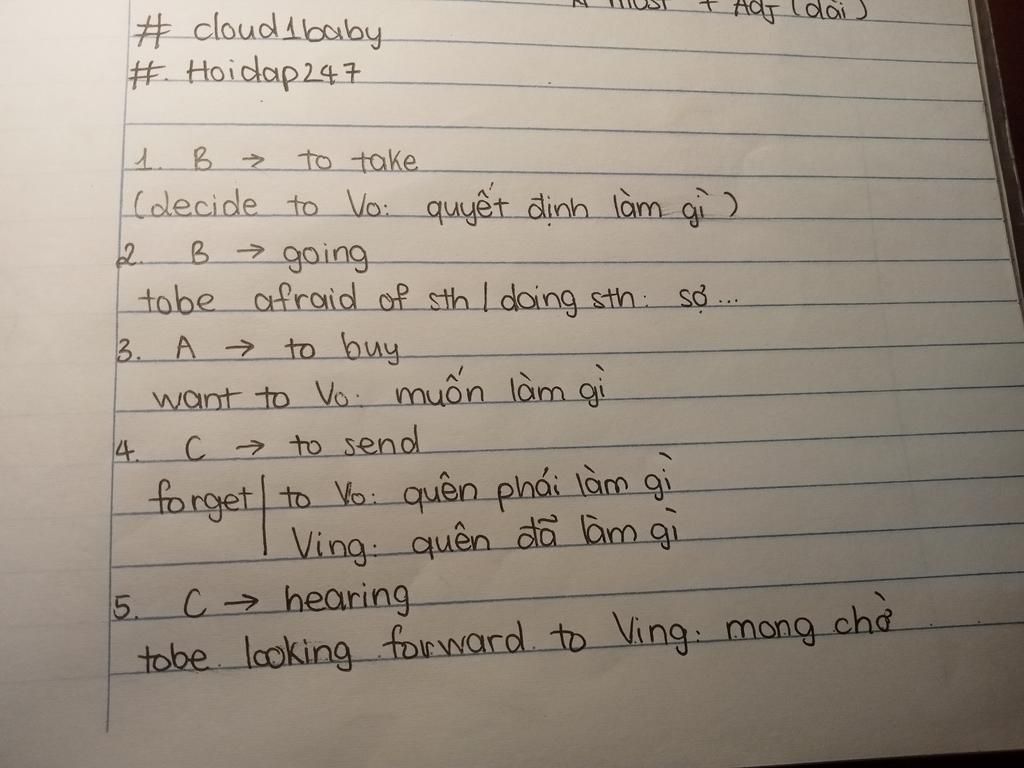 must + Adj (dài)
# cloud1baby
#. Hoidap247
1. B → to take
(decide to Vo: quyết định làm gì)
2. B → going
tobe afraid of sth / doing sth: sợ...
3. A → to buy
want to Vo: muốn làm gì
4. C → to send
forget | to Vo: quên phải làm gì
Ving: quên đã làm gì
5. C → hearing
tobe looking forward to Ving: mong chờ